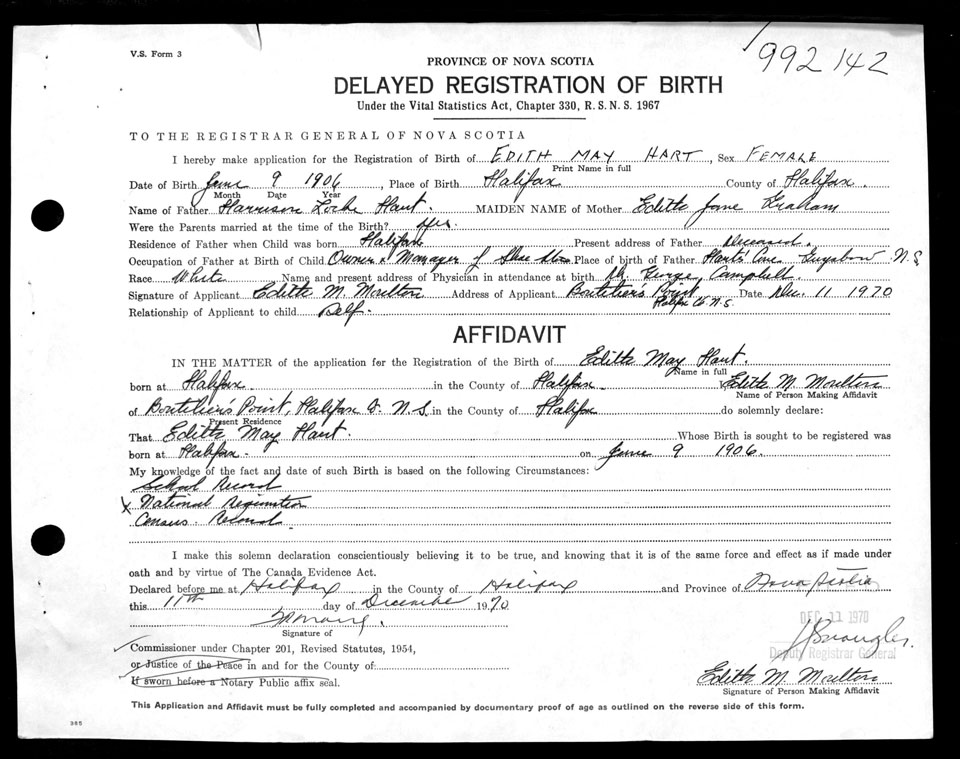 V.S. Form 3
992142
PROVINCE OF NOVA SCOTIA
DELAYED REGISTRATION OF BIRTH
Under the Vital Statistics Act, Chapter 330, R. S. N. S. 1967
TO THE REGISTRAR GENERAL OF NOVA SCOTIA
I hereby make application for the Registration of Birth of EDITH MAY HART, Sex FEMALE
Print Name in full
Date of Birth June 9 1906, Place of Birth Halifax County of Halifax.
Month Date Year
Name of Father Harrison Locke Hart MAIDEN NAME of Mother Edith Jane Graham
Were the Parents married at the time of the Birth? Yes.
Residence of Father when Child was born Halifax Present address of Father Deceased.
Occupation of Father at Birth of Child Owner & Manager of Shoe Place of birth of Father Hart's Cove Guysboro N.S
Race White Name and present address of Physician in attendance at birth Dr. George Campbell
Signature of Applicant Edith M. Moulton Address of Applicant Boutilier's Point Halifax Co. N.S. Date Dec. 11 1970
Relationship of Applicant to child Self.
AFFIDAVIT
IN THE MATTER of the application for the Registration of the Birth of Edith May Hart.
Name in full
born at Halifax. in the County of Halifax. Edith M. Moulton
Name of Person Making Affidavit
of Boutilier's Point, Halifax Co. N.S. in the County of Halifax do solemnly declare:
Present Residence
That Edith May Hart. Whose Birth is sought to be registered was
born at Halifax. on June 9 1906.
My knowledge of the fact and date of such Birth is based on the following Circumstances:
School Record
x National Registration
Census Records.
I make this solemn declaration conscientiously believing it to be true, and knowing that it is of the same force and effect as if made under
oath and by virtue of The Canada Evidence Act.
Declared before me at Halifax in the County of Halifax and Province of Nova Scotia
this 11th day of December 1970
DEC 11 1970
Signature of
Commissioner under Chapter 201, Revised Statutes, 1954,
Deputy Registrar General
or Justice of the Peace in and for the County of:
If sworn before a Notary Public affix seal.
Edith M. Moulton
Signature of Person Making Affidavit
This Application and Affidavit must be fully completed and accompanied by documentary proof of age as outlined on the reverse side of this form.
365